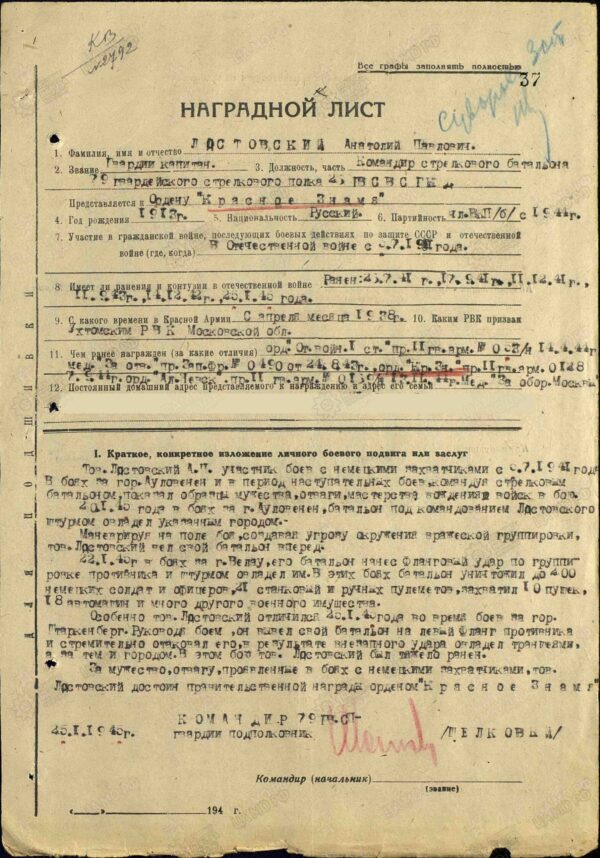 КВ
№2792
Все графы заполнять полностью
37
НАГРАДНОЙ ЛИСТ
1. Фамилия, имя и отчество ЛОСТОВСКИЙ Анатолий Павлович.
2. Звание Гвардии капитан. 3. Должность, часть Командир стрелкового батальона
79 гвардейского стрелкового полка
Представляется к Ордену "Красное Знамя"
4. Год рождения 1913г. 5. Национальность Русский. 6. Партийность с 1941г.
7. Участие в гражданской войне, последующих боевых действиях по защите СССР и отечественной
войне (где, когда) В Отечественной войне с 7.1941года.
8. Имеет ли ранения и контузии в отечественной войне Ранен: 7.41 г., 17.9.41г., 11.12.41г.,
11.9.43г., 14.12.42г., 25.1.45 года.
9. С какого времени в Красной Армии С апреля месяца 1938г. 10. Каким РВК призван
Ухтомским РВК Московской обл.
11. Чем ранее награжден (за какие отличия) орд"От.войн.I ст."пр.11гв.арм.
мед."За отв."пр.Зап.Фр.№0490 от 24.8.43г., орд."Кр.Зн."пр.11гв.арм.0128
орд."Ал.Невск. пр.11 гв.арм. Мед."За обор.Москвы
12. Постоянный домашний адрес представляемого к награждению и адрес его семьи
I. Краткое, конкретное изложение личного боевого подвига или заслуг
Тов.Лостовский А.П. участник боев с немецкими захватчиками с 7.1941года
В боях за гор.Ауловенен и в период наступательных боев,командуя стрелковым
батальоном,показал образцы мужества,отваги,мастерство вождения войск в бою.
20.1.45 года в боях за г.Ауловенен,батальон под командованием Лостовского
штурмом овладел указанным городом.-
Маневрируя на поле боя,создавая угрозу окружения вражеской группировки,
тов.Лостовский вел свой батальон вперед.
22.1.45г в боях за г.Велау,его батальон нанес фланговый удар по группи-
ровке противника и штурмом овладел им.В этих боях батальон уничтожил до 200
немецких солдат и офицеров,21 станковый и ручных пулеметов,захватил 10 пушек,
18 автомашин и много другого военного имущества.
Особенно тов.Лостовский отличился 25.1.45года во время боев за гор.
Таркенберг.Руководя боем ,он вывел свой батальон на левый фланг противника
и стремительно отаковал его,в результате внезапного удара овладел траншеями,
а за тем и городом.В этом бою тов. Лостовский был тяжело ранен.
За мужество,отвагу,проявленные в боях с немецкими захватчиками,тов.
Лостовский достоин правительственной награды орденом"Красное Знамя"
КОМАНДИР 79 гв.СП-
25.1.1945г. гвардии подполковник /ШЕЛКОВЫЙ/
Командир (начальник)
(звание)
194 г.